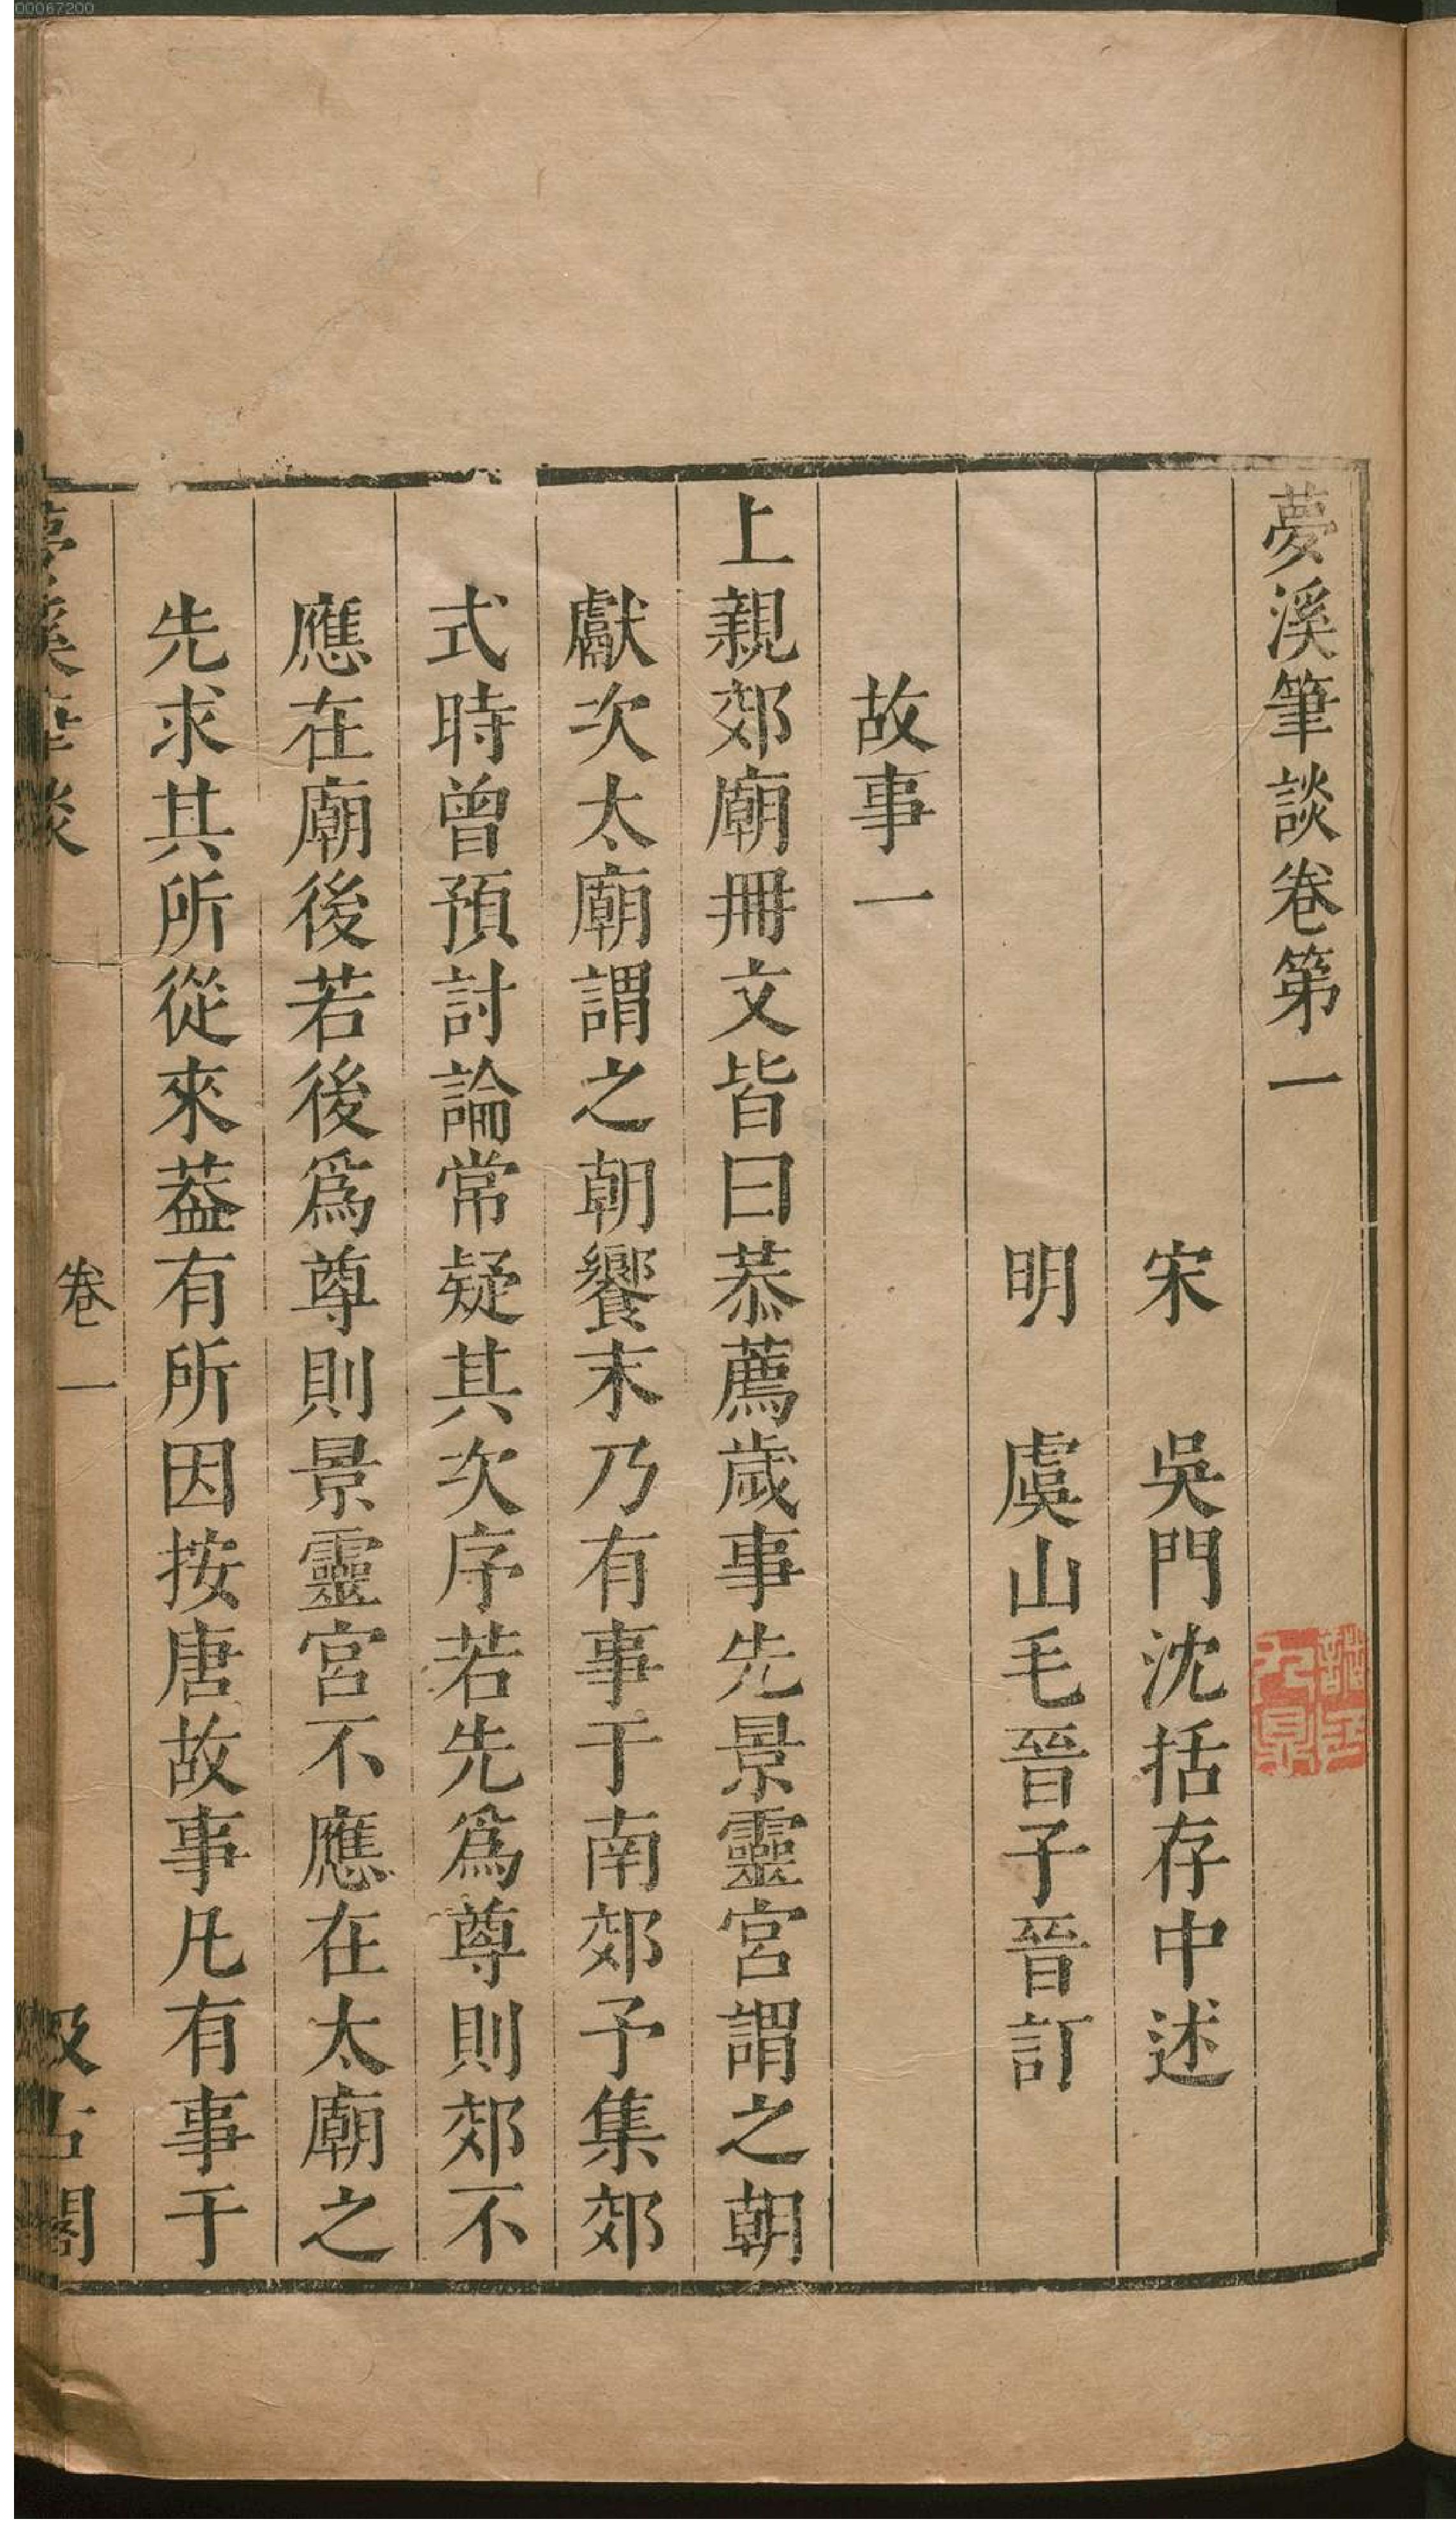 00067200
夢溪筆談卷第一
宋　吳門沈括存中述
明　虞山毛晉子晉訂
故事一
上親郊廟冊文皆曰恭薦歲事先景靈宮謂之朝
獻次太廟謂之朝饗末乃有事于南郊予集郊
式時曾預討論常疑其次序若先爲尊則郊不
應在廟後若後爲尊則景靈宮不應在太廟之
先求其所從來葢有所因按唐故事凡有事于
夢溪筆談
卷一
汲古閣